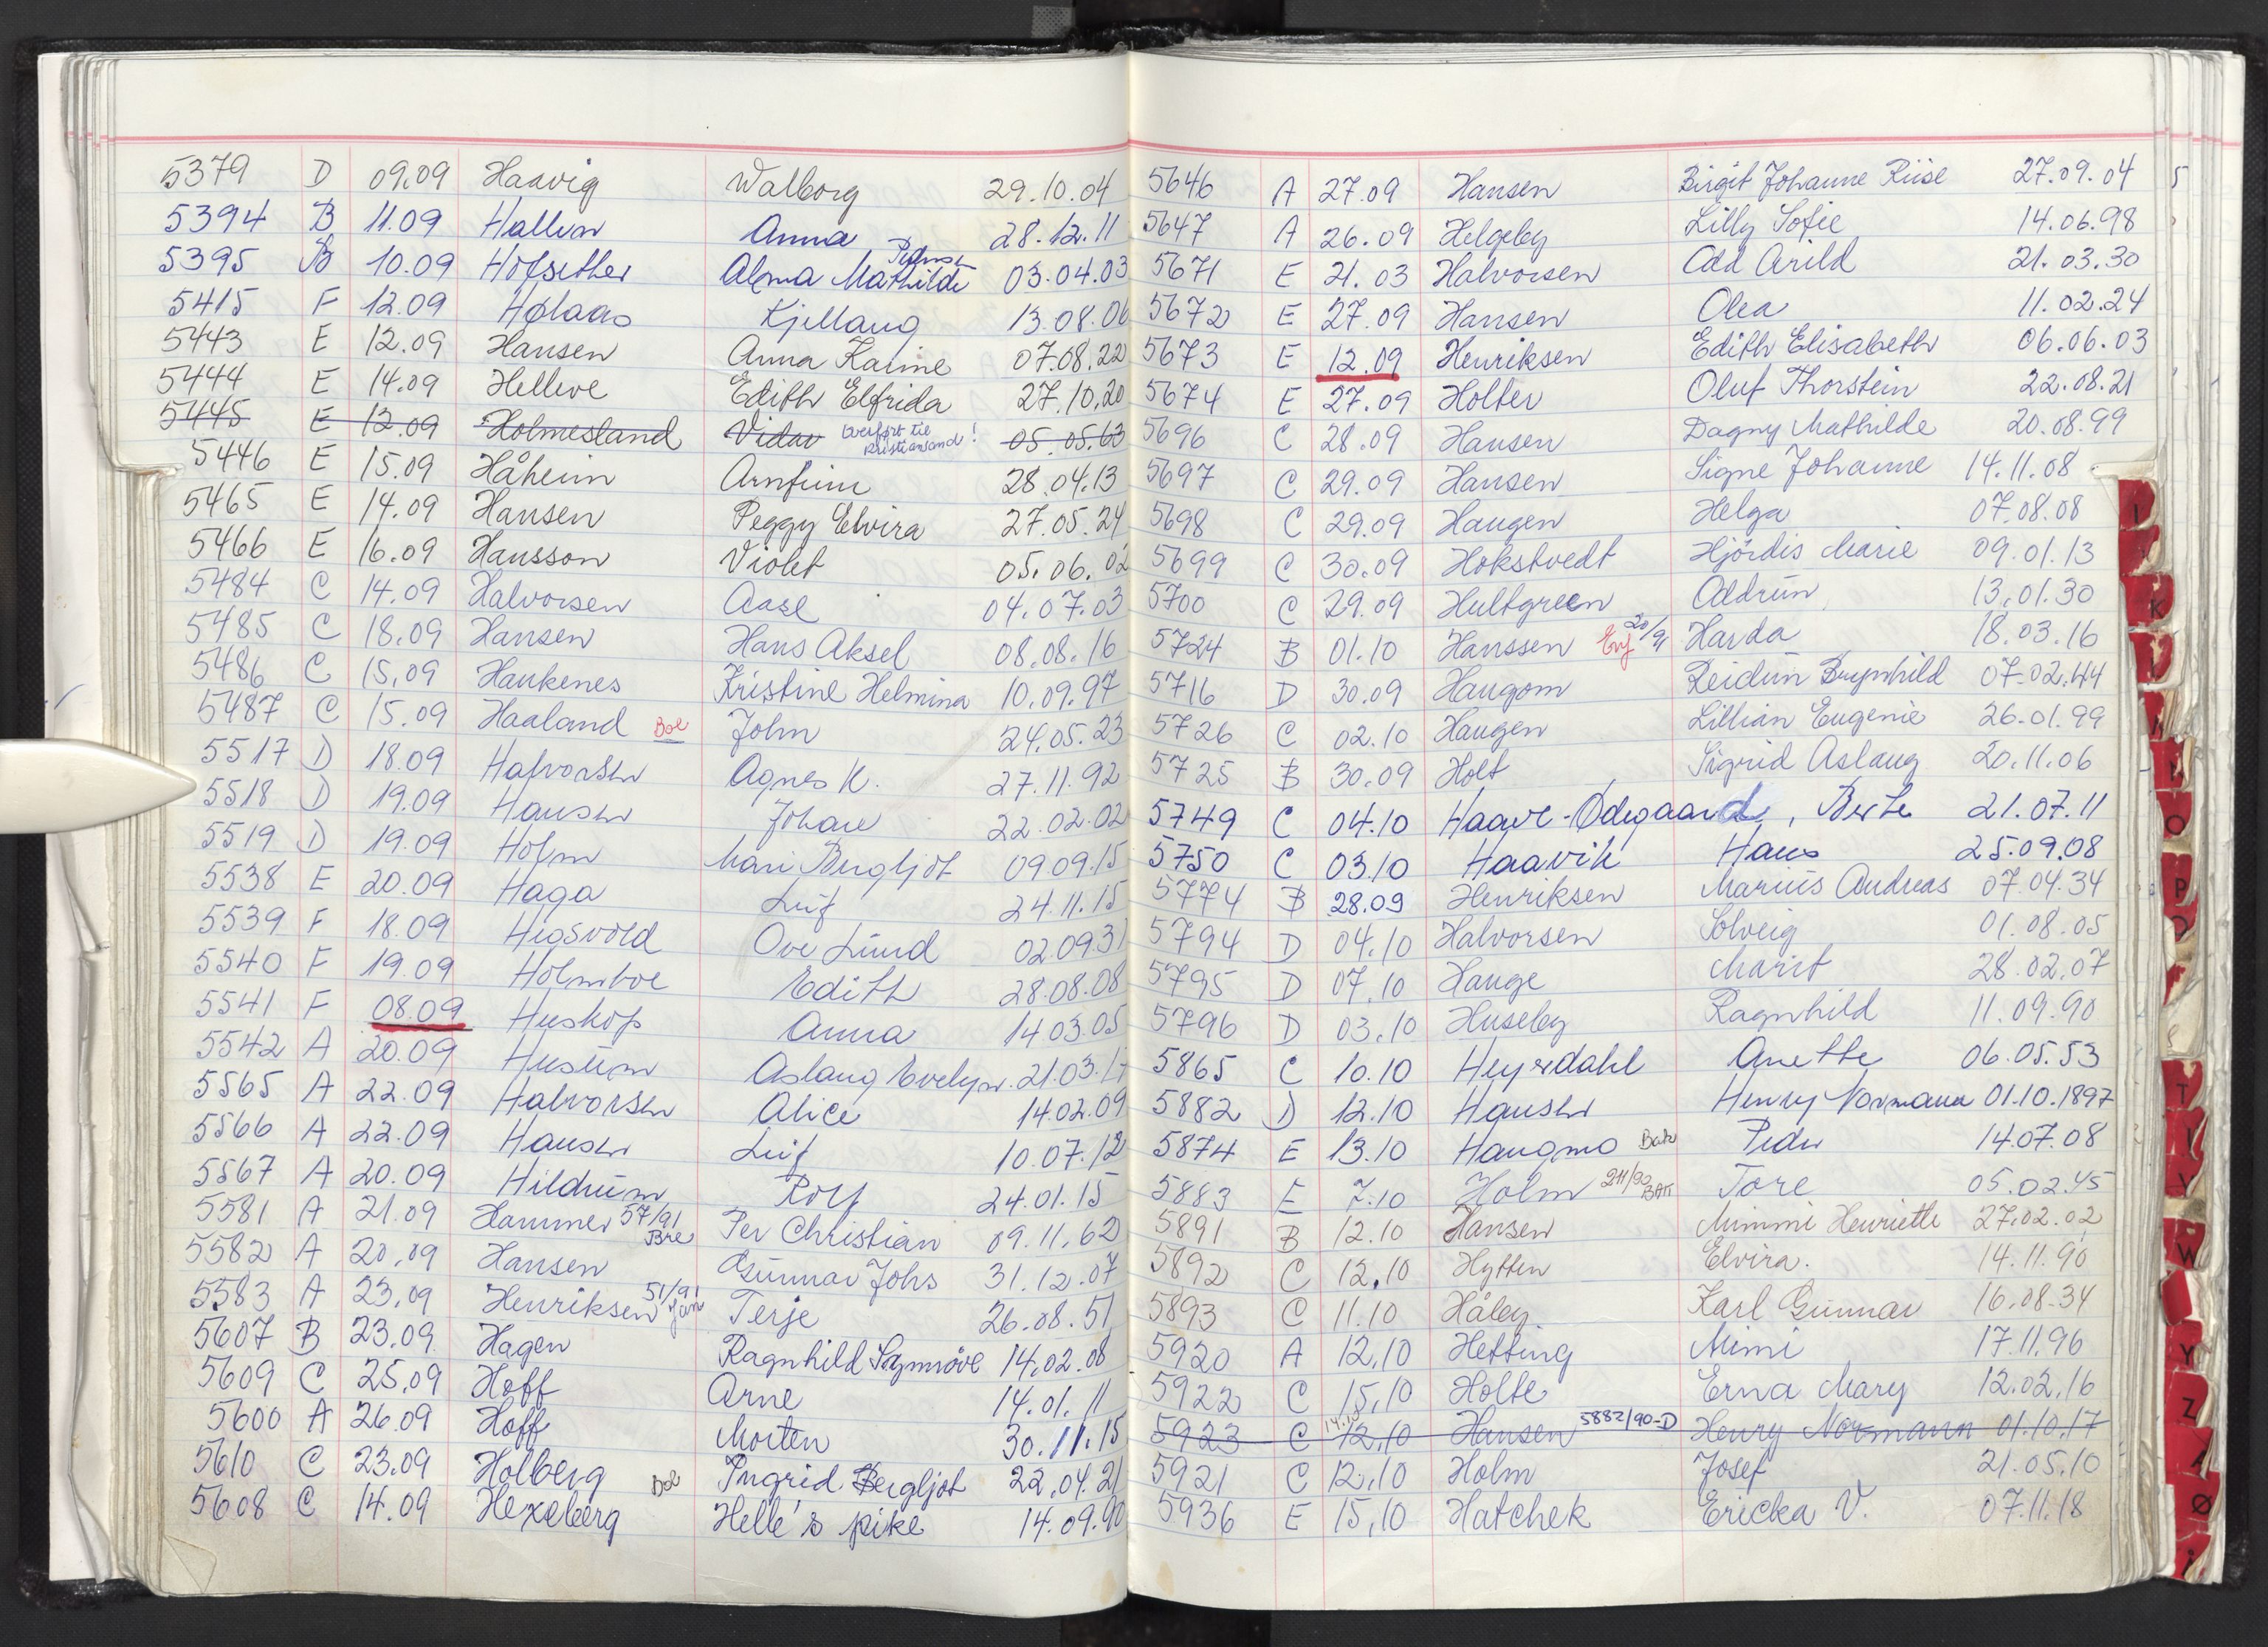 5379 D 09.09 Haavig Walborg 29.10.04
5394 B 11.09 Hallum Anna 28.12.11
5395 B 10.09 Hofsether Alma Mathilde 03.04.03
5415 F 12.09 Hølaas Kjellaug 13.08.06
5443 E 12.09 Hansen Anna Karine 07.08.22
5444 E 14.09 Helleve Edith Elfrida 27.10.20
5445 E 12.09 Holmesland Vidar Overført til Kristiansand! 05.05.63
5446 E 15.09 Håheim Arnfinn 28.04.13
5465 E 14.09 Hansen Peggy Elvira 27.05.24
5466 E 16.09 Hansson Violet 05.06.02
5484 C 14.09 Halvorsen Aase 04.07.03
5485 C 18.09 Hansen Hans Aksel 08.08.16
5486 C 15.09 Haukenes Kristine Helmina 10.09.97
5487 C 15.09 Haaland Bol John 24.05.23
5517 D 18.09 Halvorsen Agnes K. 27.11.92
5518 D 19.09 Hansen Johan 22.02.02
5519 D 19.09 Holm Mari Bergljot 09.09.15
5538 E 20.09 Haga Leif 24.11.15
5539 F 18.09 Hegsvold Ove Lund 02.09.31
5540 F 19.09 Holmboe Edith 28.08.08
5541 F 08.09 Huskop Anna 14.03.05
5542 A 20.09 Husum Aslaug Evelyn 21.03.17
5565 A 22.09 Halvorsen Alice 14.02.09
5566 A 22.09 Hansen Leif 10.07.12
5567 A 20.09 Hildrum Rolf 24.01.15
5581 A 21.09 Hammer 57/91 Bre Per Christian 09.11.62
5582 A 20.09 Hansen Gunnar Johs 31.12.07
5583 A 23.09 Henriksen 51/91 Jan Terje 26.08.51
5607 B 23.09 Hagen Ragnhild Synnøve 14.02.08
5609 C 25.09 Hoff Arne 14.01.11
5600 A 26.09 Hoff Morten 30.11.15
5610 C 23.09 Holberg Bol Ingrid Bergljot 22.04.21
5608 C 14.09 Hexeberg Helle's pike 14.09.90
5646 A 27.09 Hansen Birgit Johanne Riise 27.09.04
5647 A 26.09 Helgeby Lilly Sofie 14.06.98
5671 E 21.03 Halvorsen Odd Arild 21.03.30
5672 E 27.09 Hansen Olea 11.02.24
5673 E 12.09 Henriksen Edith Elisabeth 06.06.03
5674 E 27.09 Holter Oluf Thorstein 22.08.21
5696 C 28.09 Hansen Dagny Mathilde 20.08.99
5697 C 29.09 Hansen Signe Johanne 14.11.08
5698 C 29.09 Haugen Helga 07.08.08
5699 C 30.09 Hokstvedt Hjördis Marie 09.01.13
5700 C 29.09 Hultgreen Oddrun 13.01.30
5724 B 01.10 Hanssen 20/91 Harda 18.03.16
5716 D 30.09 Haugom Reidun Brynhild 07.02.44
5726 C 02.10 Haugen Lillian Eugenie 26.01.99
5725 B 30.09 Holt Sigrid Aslaug 20.11.06
5749 C 04.10 Haave-Ødegaard, Berte 21.07.11
5750 C 03.10 Haavik Hans 25.09.08
5774 B 28.09 Henriksen Marius Andreas 07.04.34
5794 D 04.10 Halvorsen Solveig 01.08.05
5795 D 07.10 Hauge Marit 28.02.07
5796 D 03.10 Huseby Ragnhild 11.09.90
5865 C 10.10 Heyerdahl Anette 06.05.53
5882 D 12.10 Hansen Henry Normann 01.10.1897
5874 E 13.10 Haugmo Bak Peder 14.07.08
5883 E 7.10 Holm 211/90 BAK Tore 05.02.45
5891 B 12.10 Hansen Mimmi Henriette 27.02.02
5892 C 12.10 Hytten Elvira. 14.11.90
5893 C 11.10 Håby Karl Gunnar 16.08.34
5920 A 12.10 Hetting Mimi 17.11.96
5922 C 15.10 Holte Erna Mary 12.02.16
5923 C 14.10 12.10 Hansen 5882/90-D Henry Normann 01.10.17
5921 C 12.10 Holm Josef 21.05.10
5936 E 15.10 Hatchek Ericka V. 07.11.18
I
K
O
P
T
V
W
Y
Z
Ø